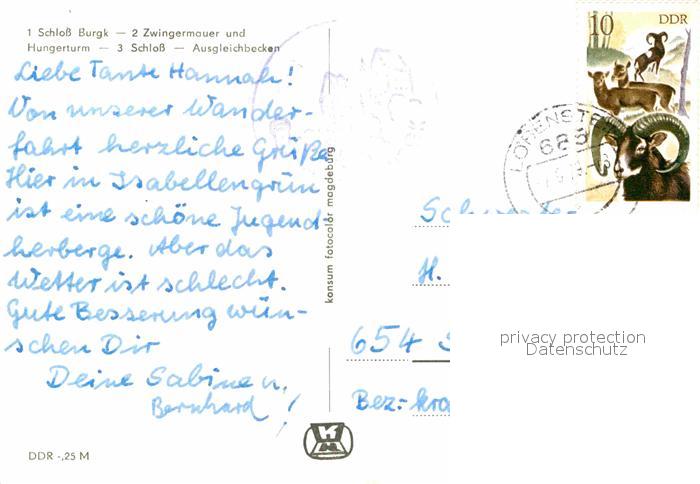 1 Schloß Burgk — 2 Zwingermauer und
Hungerturm — 3 Schloß — Ausgleichbecken
Liebe Tante Hannah!
Von unserer Wander-
fahrt herzliche Grüße
Hier in Isabellengrün
ist eine schöne Jugend
herberge. Aber das
Wetter ist schlecht.
Gute Besserung wün-
schen Dir
Deine Sabine u.
Bernhard!
DDR -,25 M
konsum fotocolor magdeburg
10 DDR
LOBENSTE
685
H.
654
Bez.-
privacy protection
Datenschutz